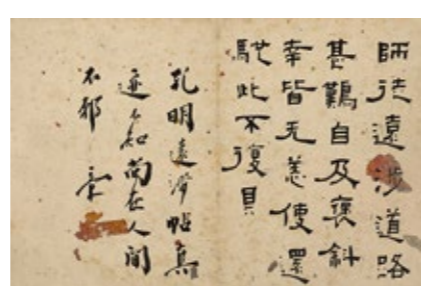 師徒遠涉道路
甚難自及褒斜
幸皆无恙使還
馳此不復具
孔明遠涉帖真
迹不知尚在人間
不邪